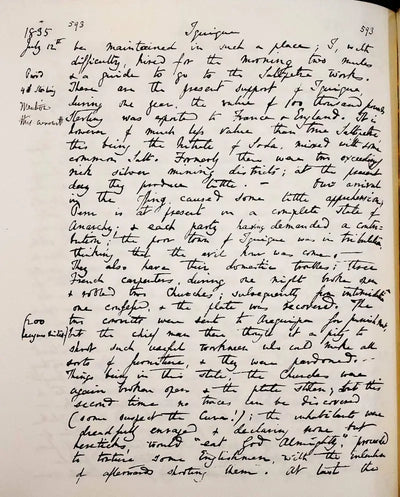 593 Iquique 593
1835
July 12th be maintained in such a place; I, with
difficulty, hired for the morning two mules
& a guide to go to the Saltpetre works.
Paid
4£ Sterling
Mention
this amount
These are the present support of Iquique
during one year, the value of 100 thousand pounds
Sterling was exported to France & England. It is
however of much less value than true Saltpetre
this being the Nitrate of Soda, mixed with some
common Salt. Formerly there were two exceedingly
rich silver mining districts; at the present
day they produce little. — Our arrival
in the offing caused some little apprehension;
Peru is at present in a complete state of
Anarchy; & each party having demanded a contri-
bution; the poor town of Iquique was in tribulation,
thinking that the evil hour was come. —
They also have their domestic troubles; three
French carpenters, during one night broke open
& robbed two Churches; subsequently
one confessed & the plate was recovered. The
two convicts were sent to Arequipa for punishment
£200
but the chief men there thought it a pity to
shoot such useful workmen who could make all
sorts of furniture, & they were pardoned. —
Things being in this state the Churches were
again broken open & the plate stolen; but this
second time no traces can be discovered
(some suspect the Cura!); the inhabitants were
dreadfully enraged & declaring none but
hereticks would "eat God Almighty," proceeded
to torture some Englishmen, with the intention
of afterwards shooting them. At last the